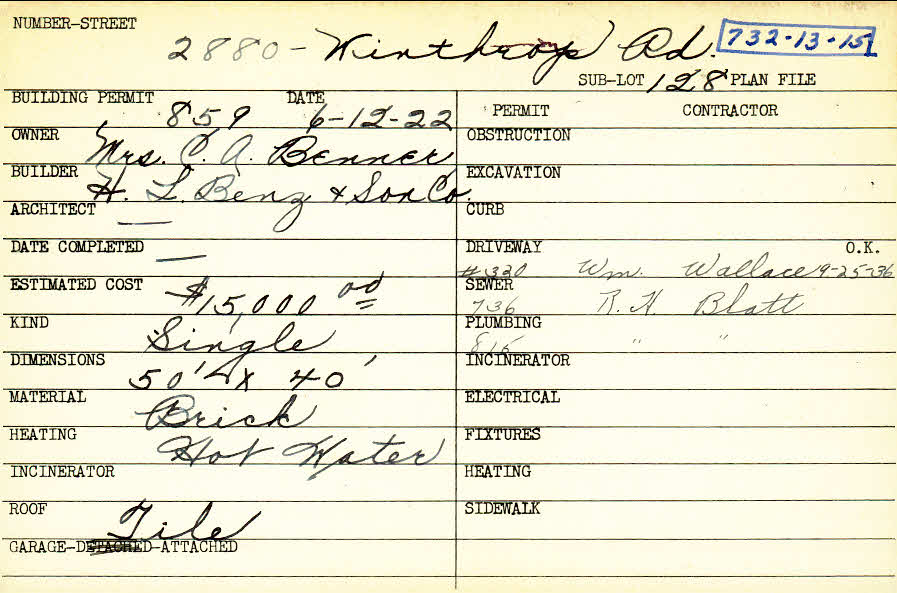 NUMBER-STREET
2880 - Winthrop Rd. 732-13-15
SUB-LOT 128 PLAN FILE
BUILDING PERMIT 859 DATE 6-12-22
OWNER Mrs. C. A. Benner
BUILDER H. L. Benz & Son Co.
ARCHITECT —
DATE COMPLETED —
ESTIMATED COST $15,000 00
KIND Single
DIMENSIONS 50' x 40'
MATERIAL Brick
HEATING Hot Water
INCINERATOR
ROOF Tile
GARAGE-DETACHED-ATTACHED
PERMIT CONTRACTOR
OBSTRUCTION
EXCAVATION
CURB
DRIVEWAY O.K.
#320 Wm. Wallace 9-25-36
SEWER
736 R. H. Blatt
PLUMBING
815 " "
INCINERATOR
ELECTRICAL
FIXTURES
HEATING
SIDEWALK